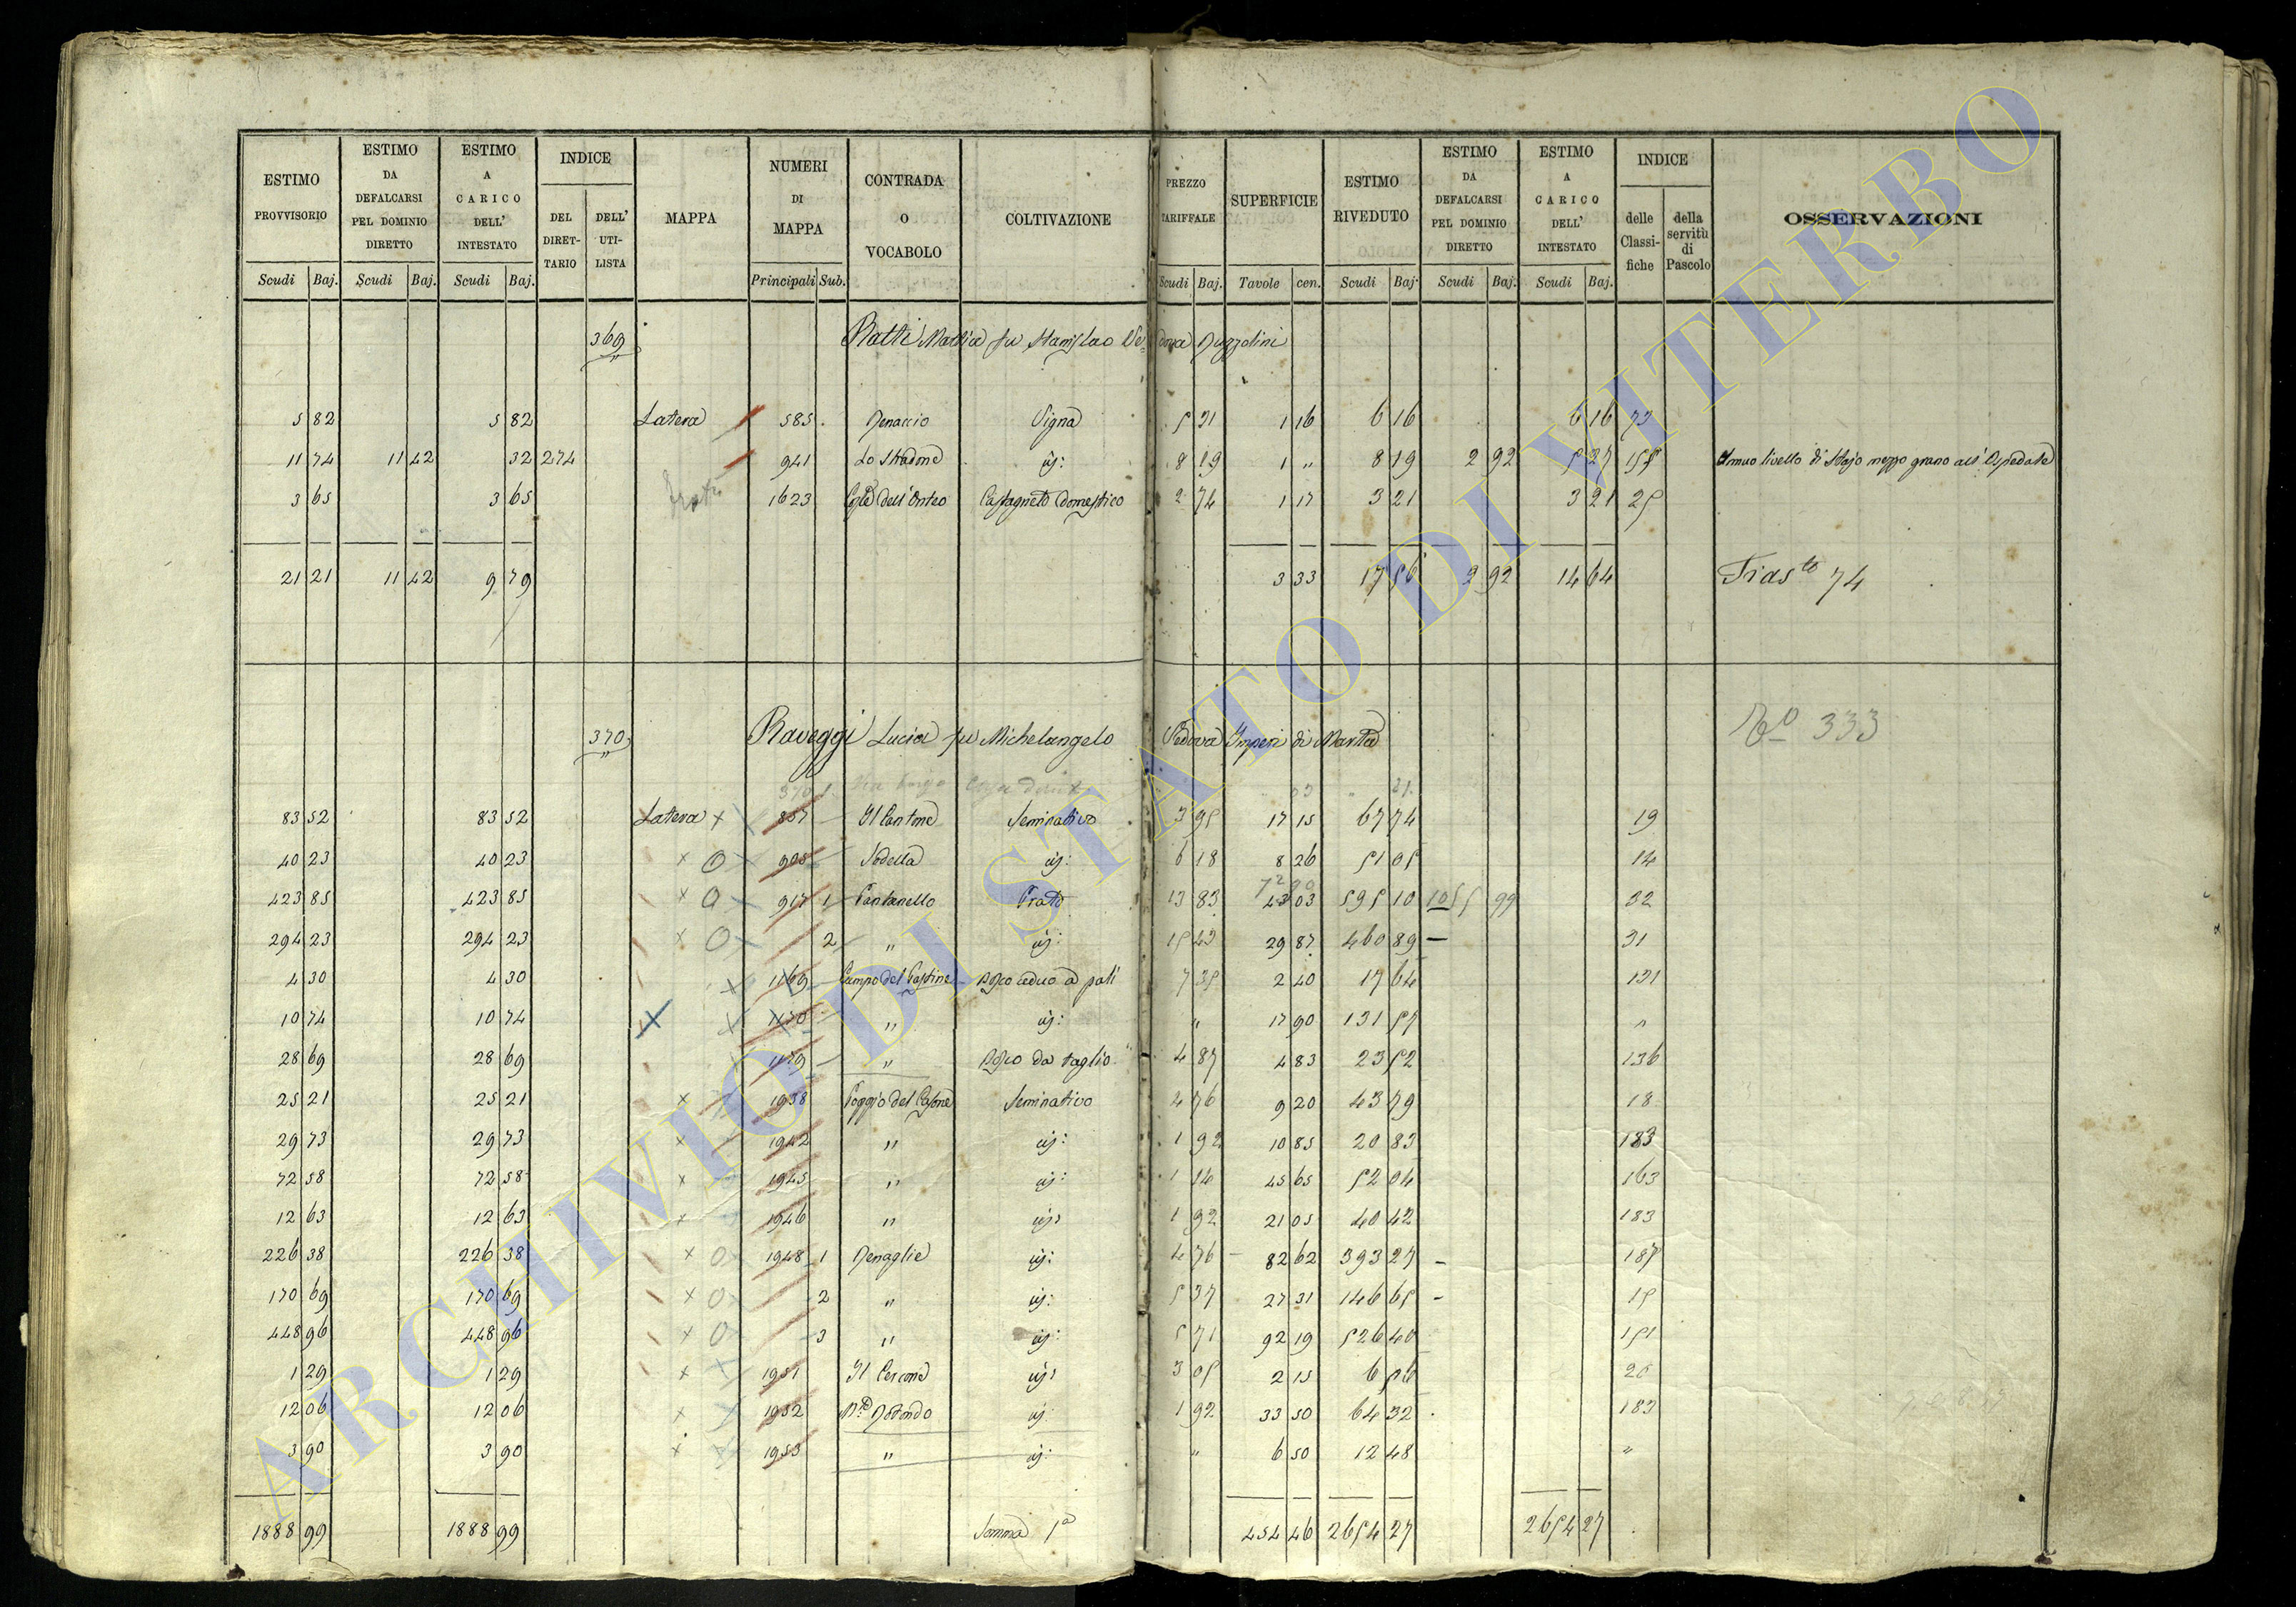 ESTIMO PROVVISORIO | ESTIMO DA DEFALCARSI PEL DOMINIO DIRETTO | ESTIMO A CARICO DELL' INTESTATO | INDICE DEL DIRETTARIO | DELL' UTILISTA | MAPPA | NUMERI DI MAPPA | CONTRADA O VOCABOLO | COLTIVAZIONE | PREZZO TARIFFALE | SUPERFICIE | ESTIMO RIVEDUTO | ESTIMO DA DEFALCARSI PEL DOMINIO DIRETTO | ESTIMO A CARICO DELL' INTESTATO | INDICE delle Classifiche | della servitù di Pascolo | OSSERVAZIONI
Scudi Baj. | Scudi Baj. | Scudi Baj. | Principali Sub. | Scudi Baj. | Tavole cen. | Scudi Baj. | Scudi Baj. | Scudi Baj.
369 Ratti Maria fu Stanislao Vedova
5 82 | 5 82 | Latera | 585 | Vigna | 5 31 | 1 16 | 6 16 | 6 16 | 73
11 74 | 11 42 | 32 | 274 | 941 | Lo Stradone | 8 19 | 1 " | 8 19 | 2 92 | 5 27 | 155 | Annuo livello di Stajo mezzo grano all' Ospedale
3 65 | 3 65 | 1623 | Castagneto domestico | 2 74 | 1 17 | 3 21 | 3 21 | 25
21 21 | 11 42 | 9 79 | 3 33 | 17 56 | 2 92 | 14 64 | 74
370 Raveggi Lucia fu Michelangelo Vedova Imperi di Marta | No 333
83 52 | 83 52 | Latera | 857 | Il Cantone | Seminativo | 3 95 | 17 15 | 67 74 | 19
40 23 | 40 23 | 908 | Sodella | 6 18 | 8 26 | 51 05 | 14
423 85 | 423 85 | 917 1 | Pantanello | Prato | 13 83 | 43 03 | 595 10 | 1055 99 | 32
294 23 | 294 23 | 2 | " | 15 43 | 29 87 | 460 89 | 31
4 30 | 4 30 | 1169 | Bosco ceduo a pali | 7 35 | 2 40 | 17 64 | 131
10 74 | 10 74 | 1170 | " | " | 17 90 | 131 57 | "
28 69 | 28 69 | 1179 | " | Bosco da taglio | 4 87 | 4 83 | 23 52 | 136
25 21 | 25 21 | 1938 | Poggio del Casone | Seminativo | 4 76 | 9 20 | 43 79 | 18
29 73 | 29 73 | 1942 | " | 1 92 | 10 85 | 20 83 | 183
72 58 | 72 58 | 1945 | " | 1 14 | 45 65 | 52 04 | 163
12 63 | 12 63 | 1946 | " | 1 92 | 21 05 | 40 42 | 183
226 38 | 226 38 | 1948 1 | 4 76 | 82 62 | 393 27 | 187
170 69 | 170 69 | 2 | " | 5 37 | 27 31 | 146 65 | 15
448 96 | 448 96 | 3 | " | 5 71 | 92 19 | 526 40 | 151
1 29 | 1 29 | 1951 | 3 05 | 2 15 | 6 56 | 20
12 06 | 12 06 | 1952 | 1 92 | 33 50 | 64 32 | 183
3 90 | 3 90 | 1953 | " | " | 6 50 | 12 48 | "
1888 99 | 1888 99 | Somma 1a | 454 46 | 2654 27 | 2654 27
ARCHIVIO DI STATO DI VITERBO